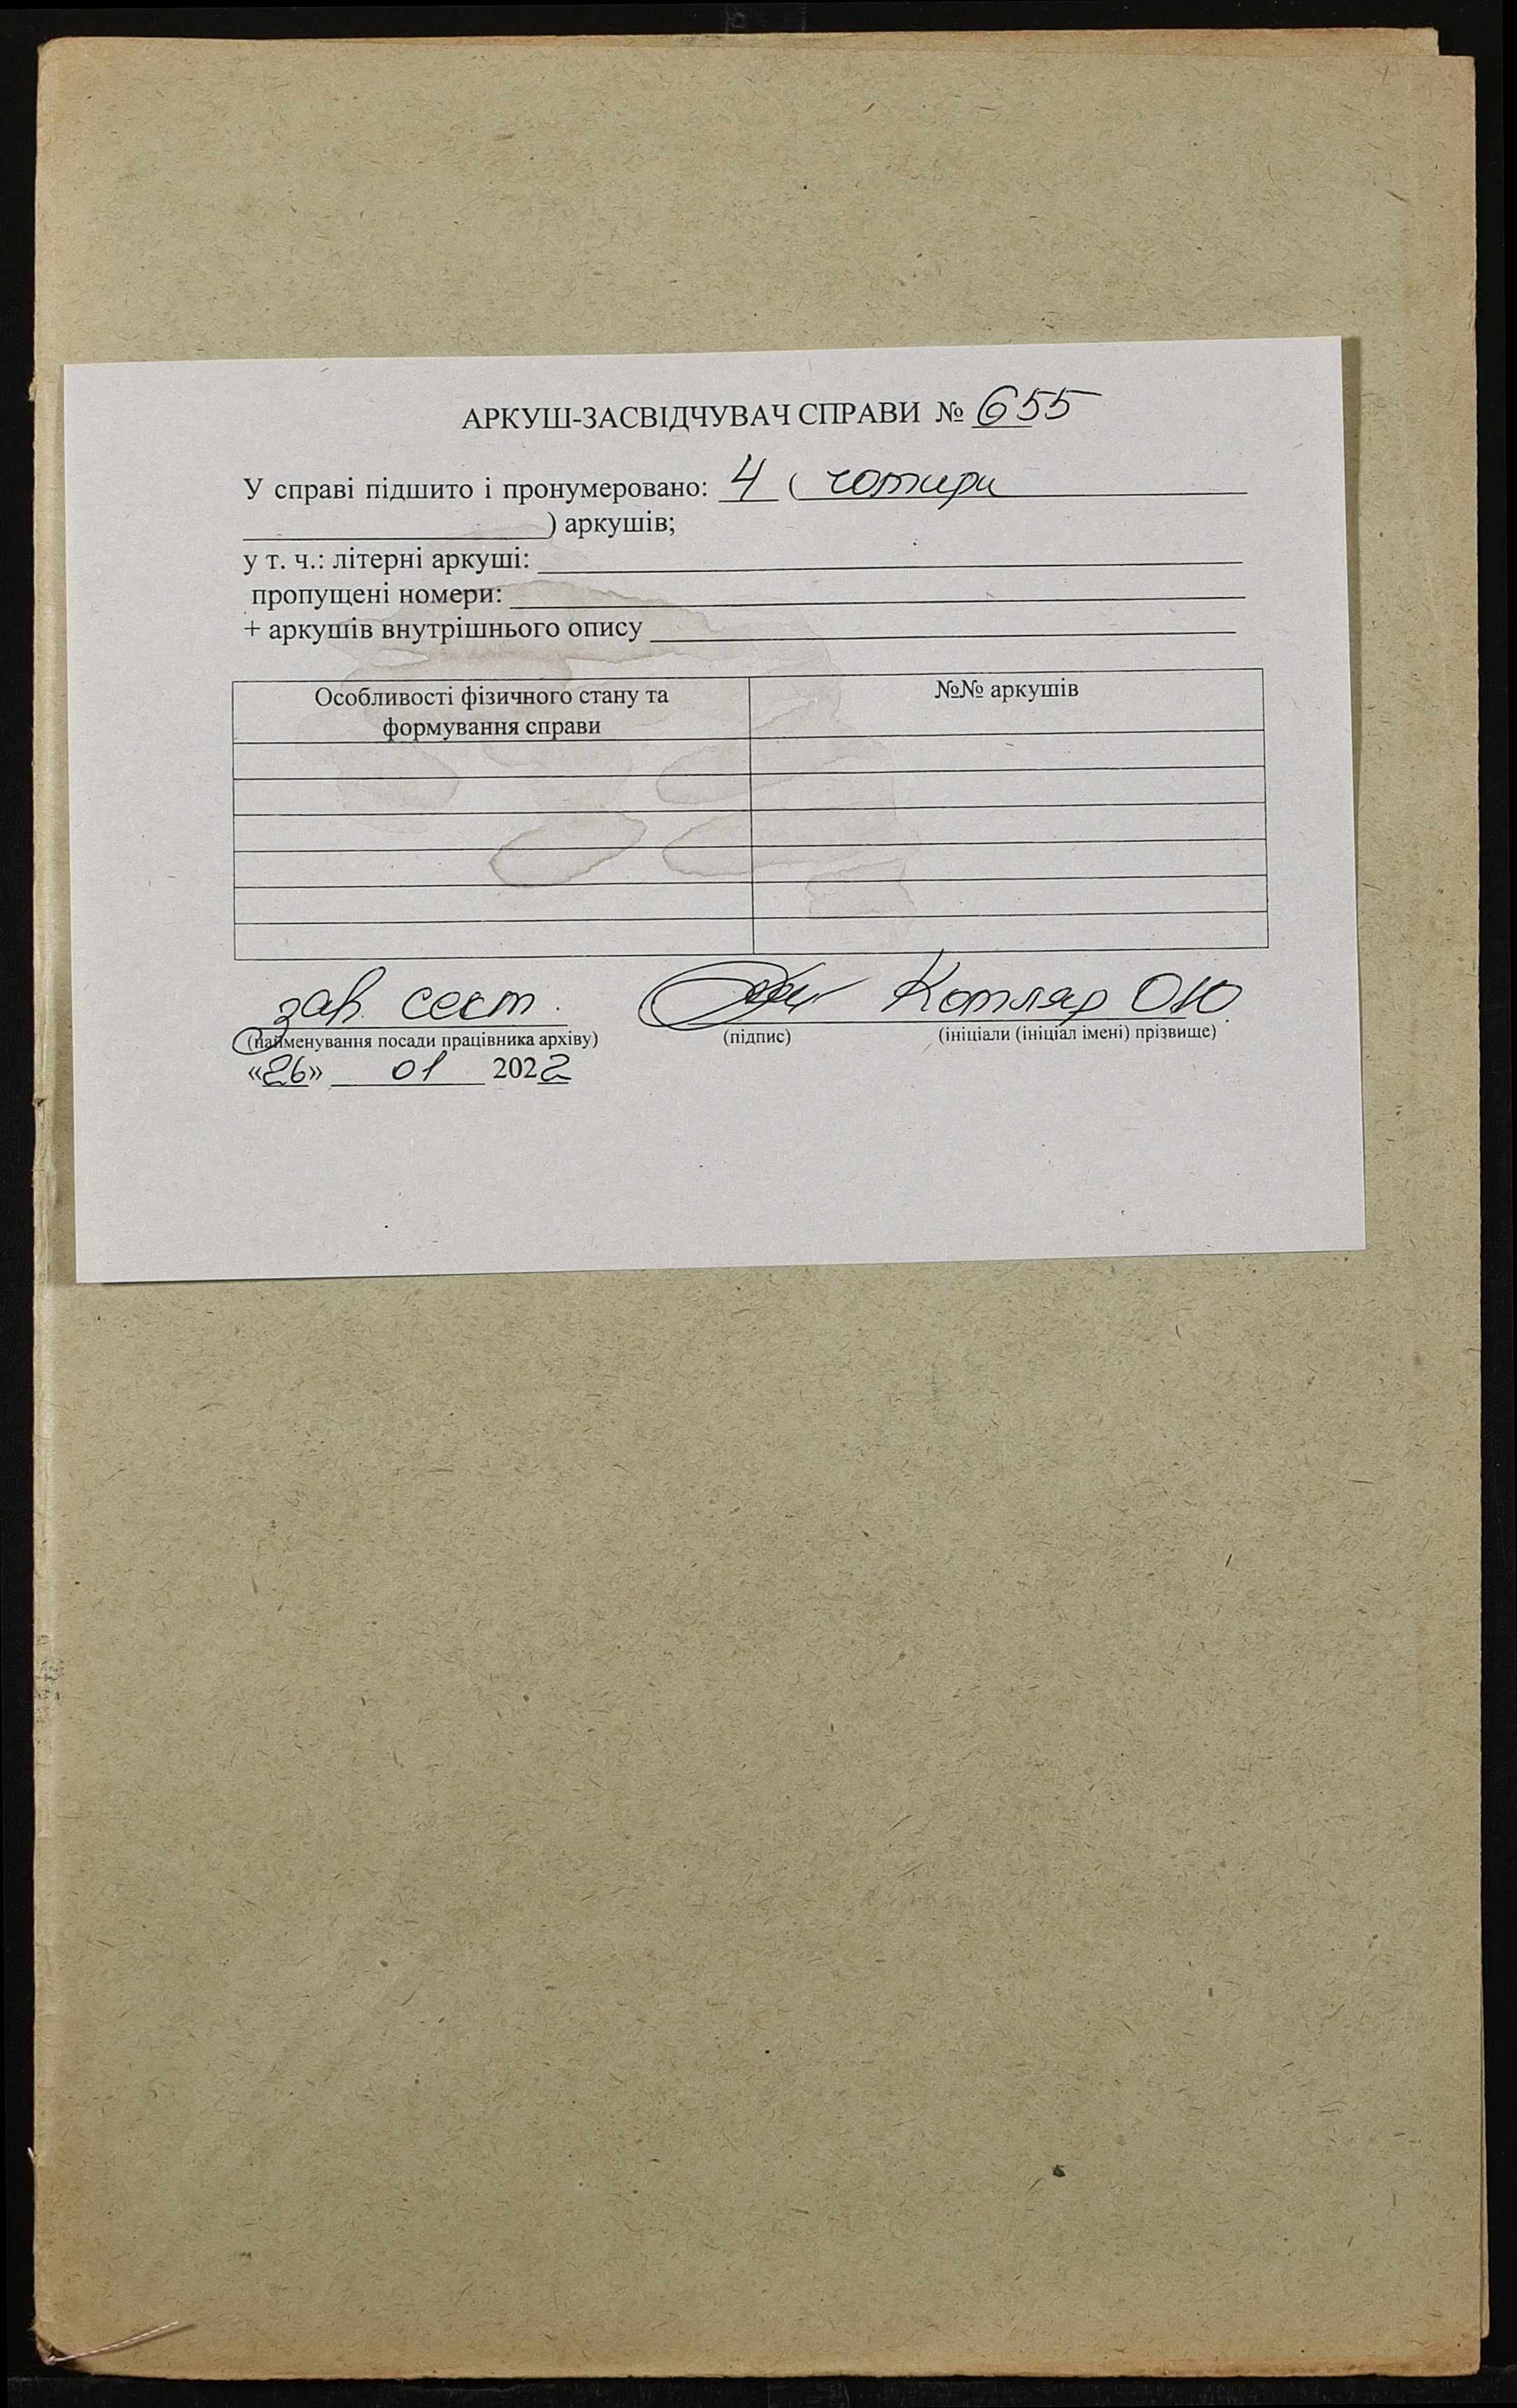 АРКУШ-ЗАСВІДЧУВАЧ СПРАВИ № 655
У справі підшито і пронумеровано: 4 ( чотири
) аркушів;
у т. ч.: літерні аркуші:
пропущені номери:
+ аркушів внутрішнього опису
Особливості фізичного стану та
формування справи
№№ аркушів
зав. сект. Котляр ОЮ
(найменування посади працівника архіву) (підпис) (ініціали (ініціал імені) прізвище)
«26» 01 2022